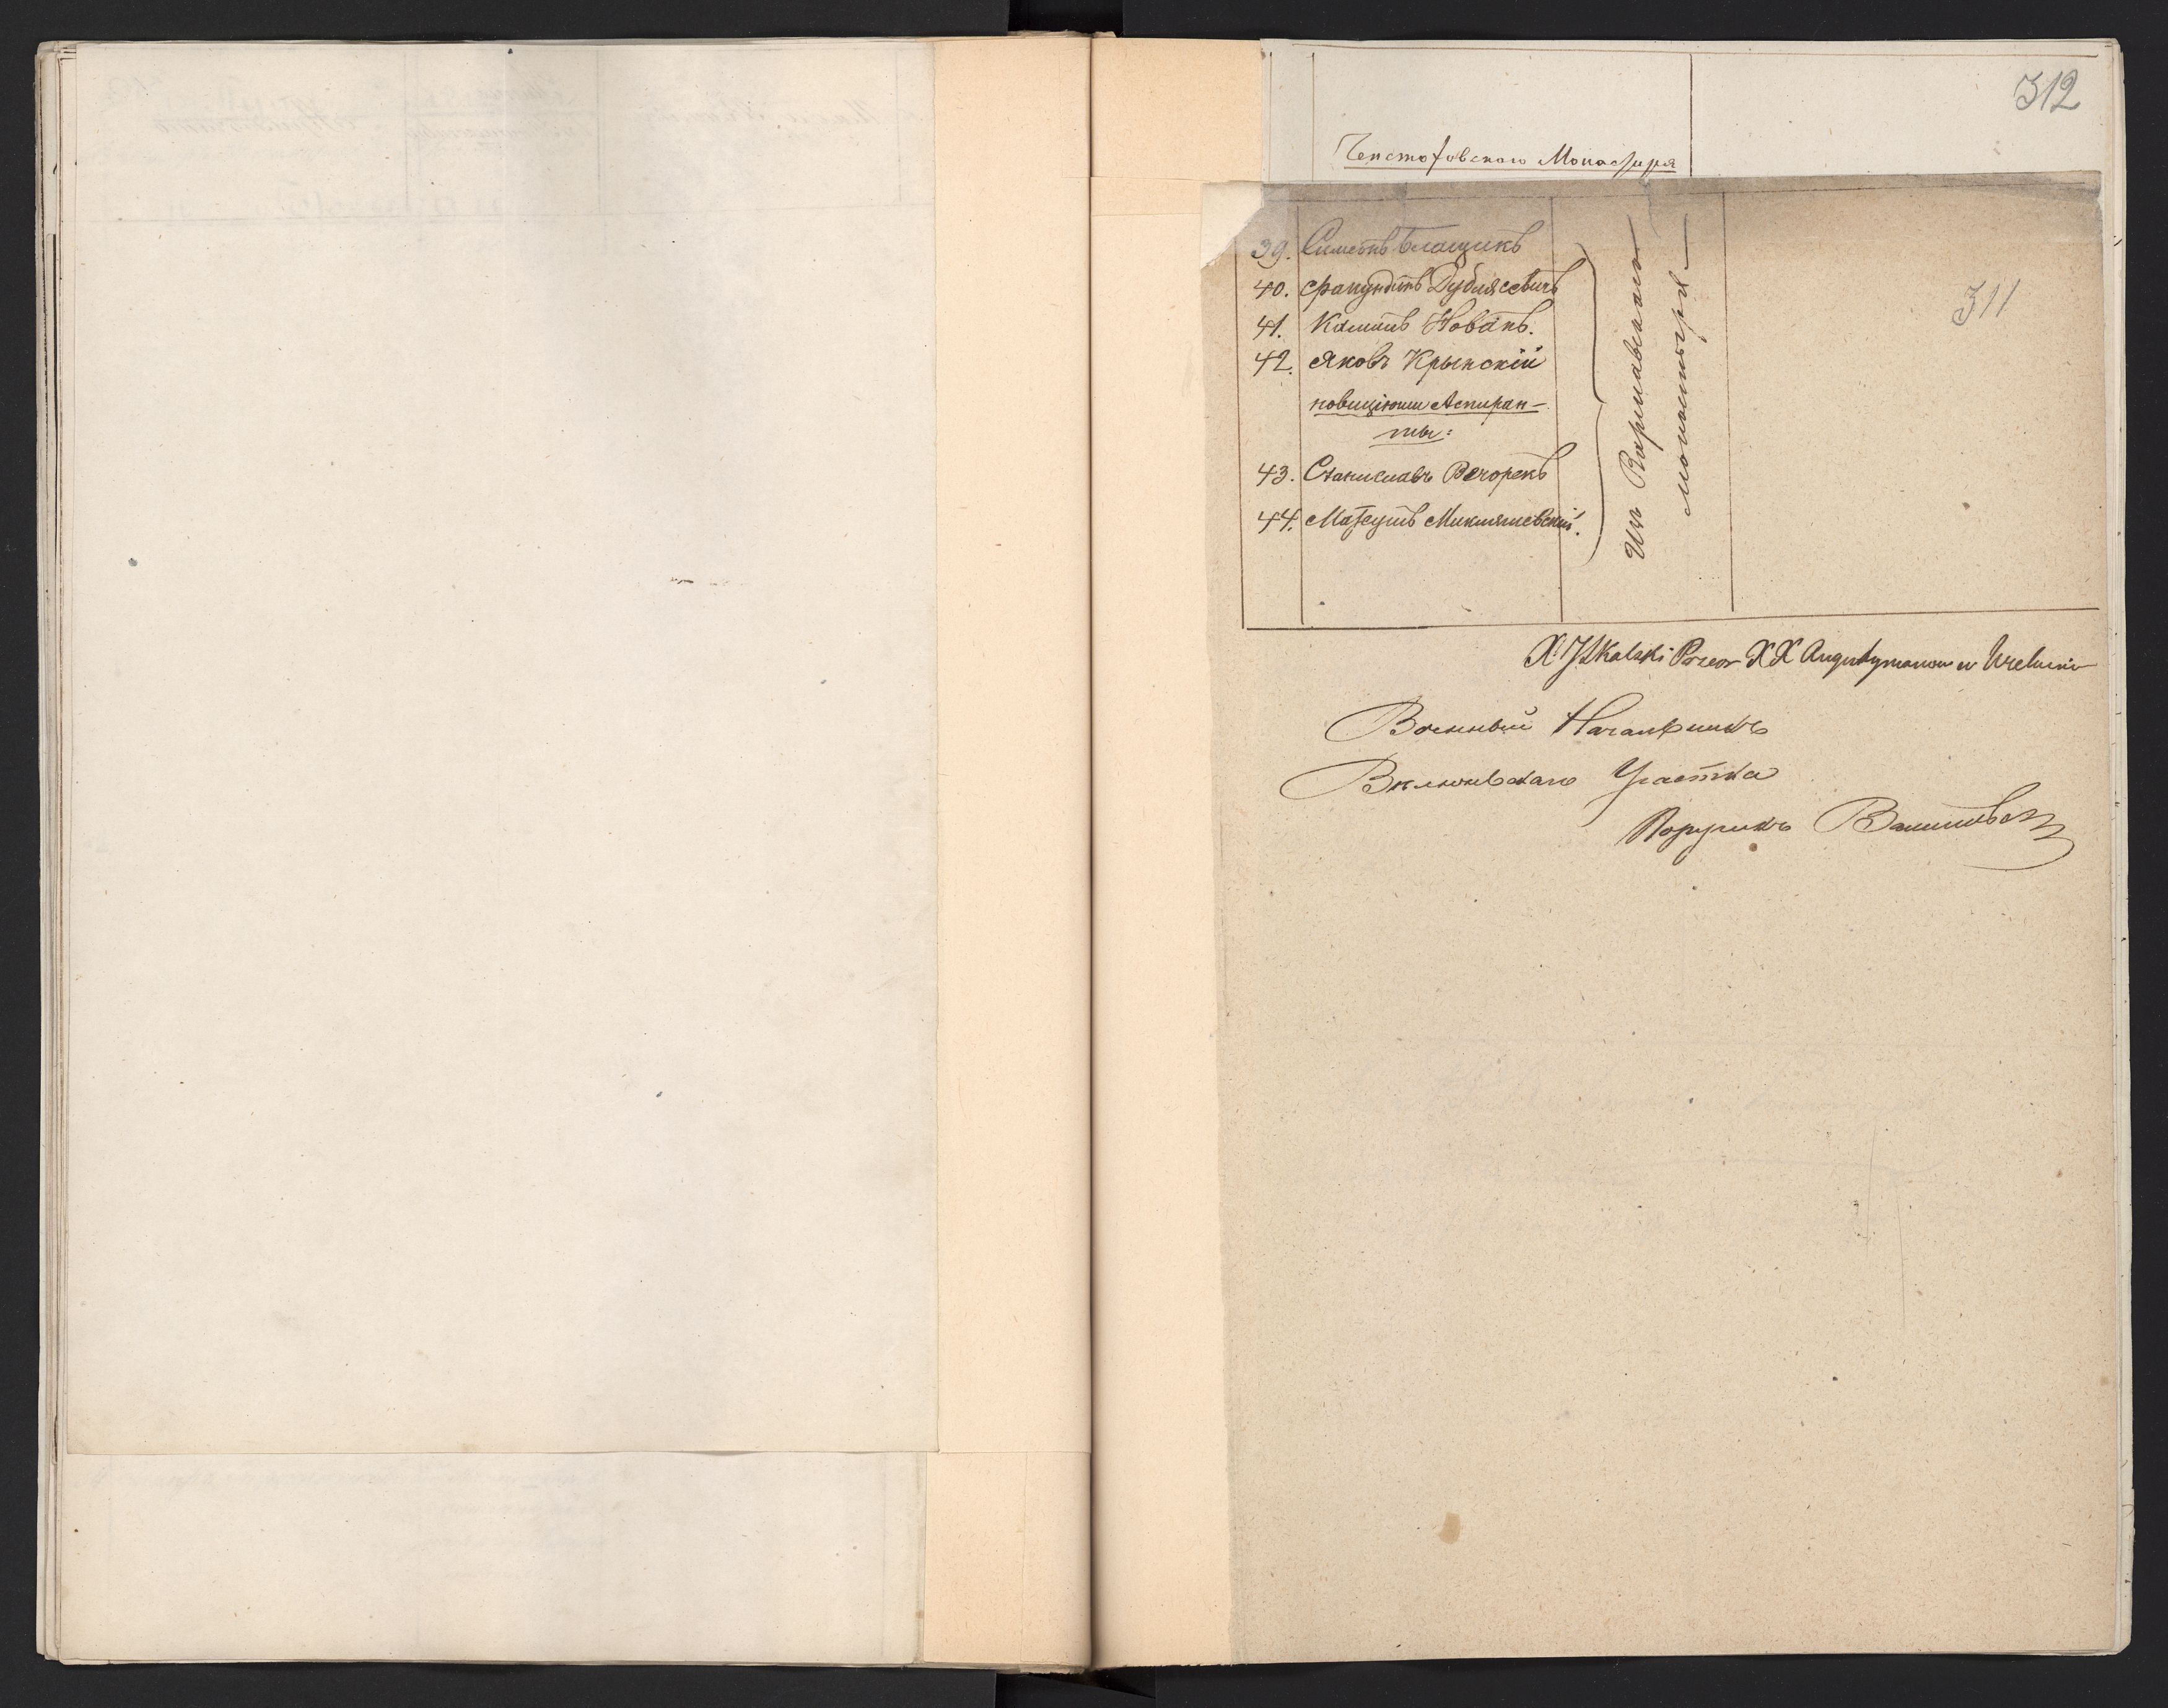 312
Ченстоховскаго Монастыря
311
39. Симеонъ Блащикъ
40. Факундинъ Дублясевичъ
41. Каликстъ Новакъ.
42. Яковъ Крынскій
новиціюши Аспиран-
ты:
43. Станиславъ Вечорекъ
44. Матеушъ Микляшевскій.
Изъ Варшавскаго
монастыря
X J Skalski Przeor XX Augustyanow w Wieluniu
Военный Начальникъ
Велюньскаго Участка
Поручикъ